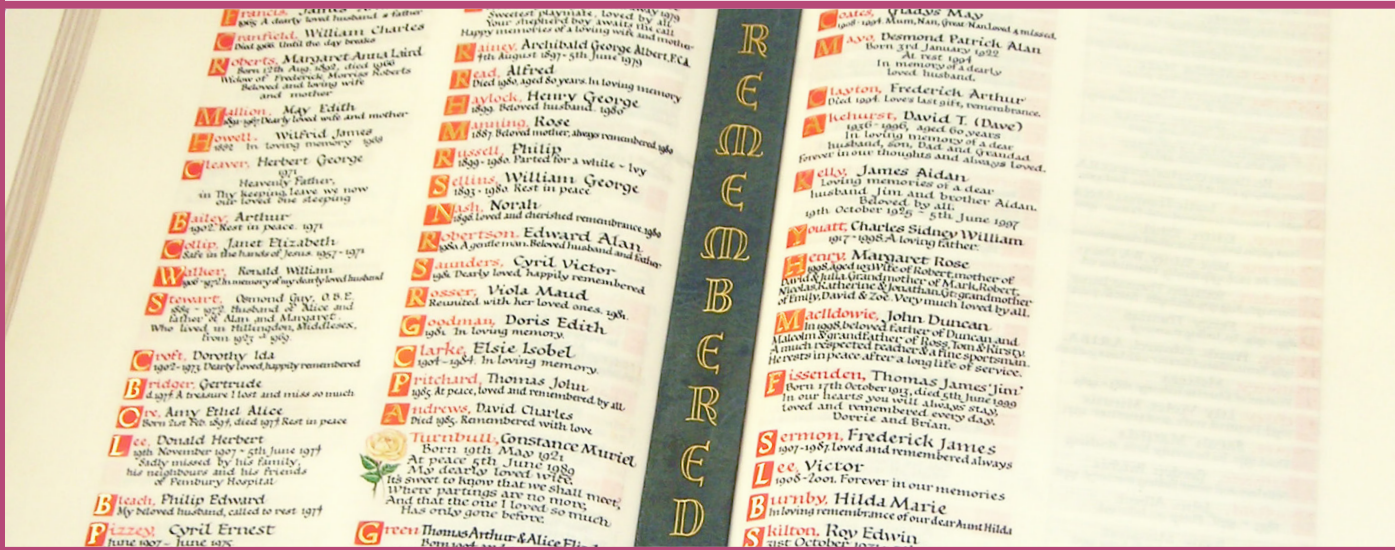 Francis, James
1965 A dearly loved husband & father
Cranfield, William Charles
Died 1966. Until the day breaks
Roberts, Margaret Anna Laird
Born 12th Aug. 1892, died 1966
Widow of Frederick Morriss Roberts
Beloved and loving wife
and mother
Mallion, May Edith
Dearly loved wife and mother
Howell, Wilfrid James
1882 In loving memory 1968
Cleaver, Herbert George
1971
Heavenly Father,
in Thy keeping leave we now
our loved one sleeping
Bailey, Arthur
1902. Rest in peace. 1971
Collip, Janet Elizabeth
Safe in the hands of Jesus. 1957-1971
Walker, Ronald William
In memory of my dearly loved husband
Stewart, Osmond Guy, O.B.E.
1885 - 1972. Husband of Alice and
Father of Alan and Margaret.
Who lived in Hillingdon, Middlesex,
from 1923 - 1969.
Croft, Dorothy Ida
1902-1973 Dearly loved, happily remembered
Bridger, Gertrude
d. 1974 A treasure I lost and miss so much
Cox, Amy Ethel Alice
Born 21st Feb. 1894, died 1974 Rest in peace
Lee, Donald Herbert
19th November 1907 - 5th June 1974
Sadly missed by his family,
his neighbours and his friends
of Pembury Hospital
Bleach, Philip Edward
My beloved husband, called to rest 1974
Pizzey, Cyril Ernest
June 1907 - June 1975
1979
Sweetest playmate, loved by all
Your shepherd boy awaits the call
Happy memories of a loving wife and mother
Rainey, Archibald George Albert, F.C.A.
7th August 1897 - 5th June 1979
Read, Alfred
Died 1980, aged 80 years. In loving memory
Haylock, Henry George
1899. Beloved husband. 1980
Manning, Rose
1887. Beloved mother, always remembered. 1980
Russell, Philip
1899-1980. Parted for a while - Ivy
Sellins, William George
1893-1980. Rest in peace
Nash, Norah
1898. Loved and cherished remembrance. 1980
Robertson, Edward Alan
1980. A gentle man. Beloved husband and father
Saunders, Cyril Victor
1981. Dearly loved, happily remembered
Rosser, Viola Maud
Reunited with her loved ones. 1981.
Goodman, Doris Edith
1981. In loving memory.
Clarke, Elsie Isobel
1904-1984. In loving memory.
Pritchard, Thomas John
1985. At peace, loved and remembered by all
Andrews, David Charles
Died 1985. Remembered with love
Turnbull, Constance Muriel
Born 19th May 1921
At peace 5th June 1989
My dearly loved wife.
It's sweet to know that we shall meet,
Where partings are no more,
And that the one I loved so much
Has only gone before.
Green Thomas Arthur & Alice
REMEMBERED
Coates, Gladys May
1908-1994. Mum, Nan, Great Nan. Loved & missed.
Mayo, Desmond Patrick Alan
Born 3rd January 1922
At rest 1994
In memory of a dearly
loved husband.
Clayton, Frederick Arthur
Died 1994. Love's last gift, remembrance.
Akehurst, David T. (Dave)
1936-1996, aged 60 years
In loving memory of a dear
husband, son, Dad and Grandad
Forever in our thoughts and always loved.
Kelly, James Aidan
Loving memories of a dear
husband Jim and brother Aidan.
Beloved by all.
19th October 1925 - 5th June 1997
Youatt, Charles Sidney William
1917-1998. A loving father.
Henry, Margaret Rose
1998. Aged 101. Wife of Robert, mother of
David & Julia. Grandmother of Mark, Robert,
Nicolas, Katherine & Jonathan. Gt. grandmother
of Emily, David & Zoë. Very much loved by all.
MacIldowie, John Duncan
In 1998, beloved father of Duncan and
Malcolm & grandfather of Ross, Tom & Kirsty.
A much respected teacher & a fine sportsman.
He rests in peace after a long life of service.
Fissenden, Thomas James 'Jim'
Born 17th October 1913, died 5th June 1999
In our hearts you will always stay,
loved and remembered every day.
Dorrie and Brian.
Sermon, Frederick James
1907-1987. Loved and remembered always
Lee, Victor
1908-2001. Forever in our memories
Burnby, Hilda Marie
In loving remembrance of our dear Aunt Hilda
Skilton, Roy Edwin
31st October